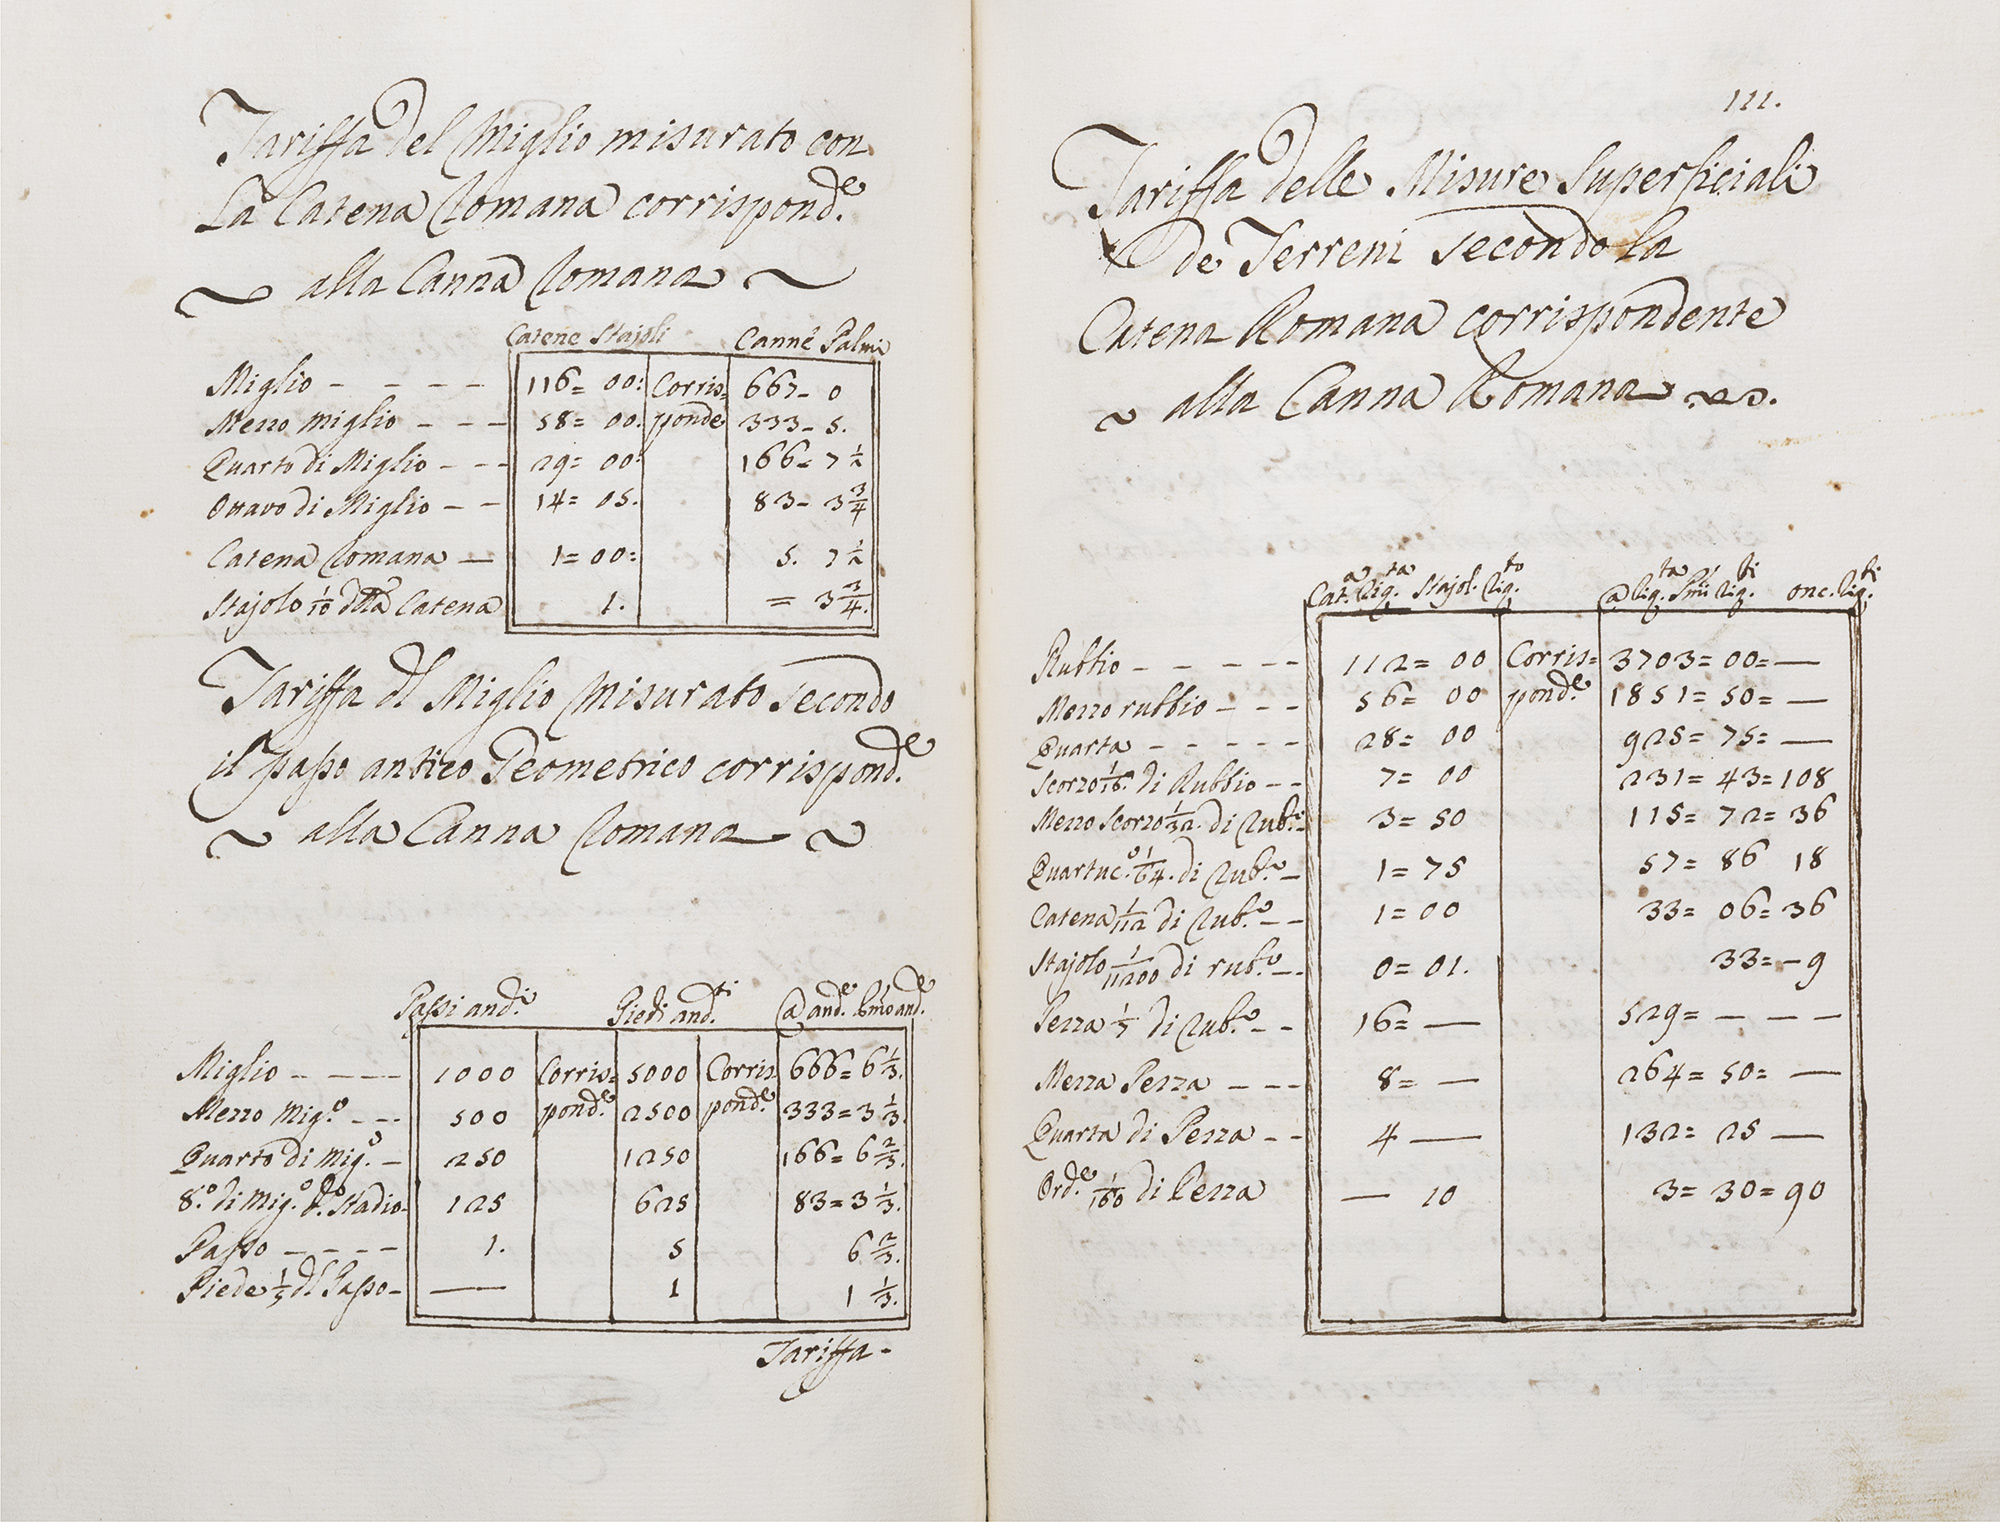 Tariffa del Miglio misurato con
La Catena Romana corrispond.e
alla Canna Romana
Catene Stajoli Canne Palmi
Miglio - - - - 116= 00: Corris= 667- 0
Mezzo miglio - - - 58= 00. ponde 333- 5.
Quarto di Miglio - - - 29= 00: 166- 7 1/2
Ottavo di Miglio - - 14= 05. 83- 3 3/4
Catena Romana — 1= 00: 5. 7 1/2
Stajolo 1/10 dlla Catena 1. = 3 3/4.
Tariffa dl Miglio Misurato Secondo
il passo antico Geometrico corrispond.e
alla Canna Romana
Passi and.i Piedi and.ti @ and.e and.e
Miglio - - - - 1000 Corris= 5000 Corris 666= 6 1/3.
Mezzo Mig.o - - - 500 pond.e 2500 pond.e 333= 3 1/3.
Quarto di Mig.o - 250 1250 166= 6 2/3.
8.o di Mig.o d.o Stadio- 125 625 83= 3 1/3.
Passo - - - - 1. 5 6 2/3.
Piede 1/5 dl Passo- — 1 1 1/3.
Tariffa-
111.
Tariffa delle Misure Superficiali
de Terreni secondo la
Catena Romana corrispondente
alla Canna Romana
Cat.a liq.ta Stajol. liq.to @ liq.ta liq.ti onc. liq.ti
Rubbio - - - - - 112= 00 Corris= 3703= 00= —
Mezzo rubbio - - - 56= 00 pond.e 1851= 50= —
Quarta - - - - - 28= 00 925= 75= —
Scorzo 1/16. di Rubbio - - 7= 00 231= 43= 108
Mezzo Scorzo 1/32. di Rub.o- 3= 50 115= 72= 36
Quartuc.o 1/64. di Rub.o - 1= 75 57= 86 18
Catena 1/112 di Rub.o - - 1= 00 33= 06= 36
Stajolo 1/11200 di rub.o - - 0= 01. 33= - 9
Pezza 1/7 di Rub.o - - 16= — 529= - - -
Mezza Pezza - - - 8= — 264= 50= —
Quarta di Pezza - - 4 — 132= 25 —
Ord.e 1/160 di Pezza — 10 3= 30= 90